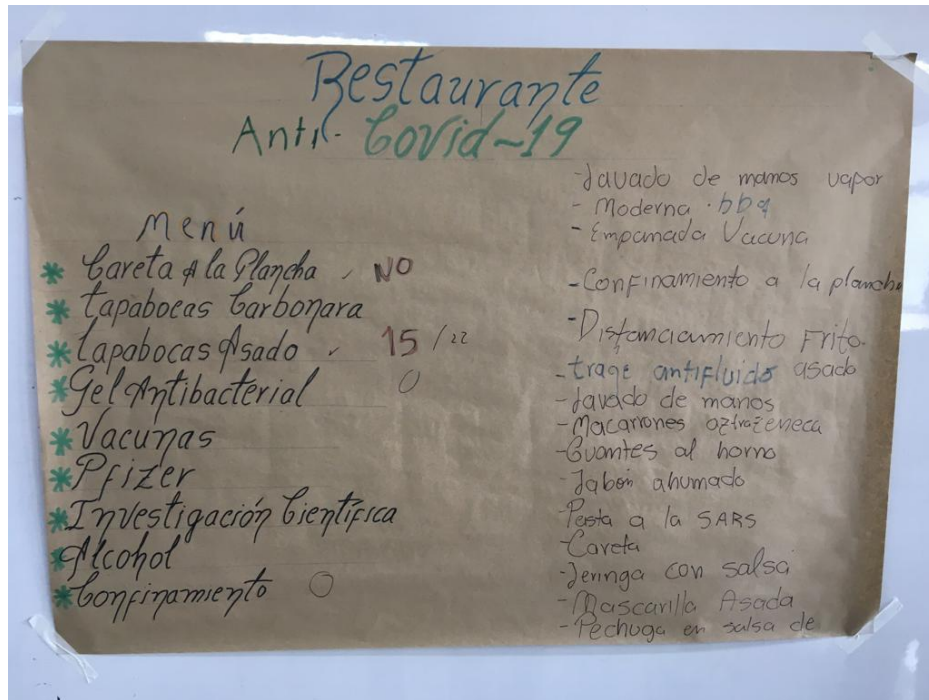 Restaurante
Anti- Covid-19
Menú
* Careta A la Plancha NO
* tapabocas Carbonara
* Tapabocas Asado 15/22
* Gel Antibacterial 0
* Vacunas
* Pfizer
* Investigación Científica
* Alcohol
* Confinamiento 0
- Lavado de manos vapor
- Moderna · bbq
- Empanada Vacuna
- Confinamiento a la plancha
- Distanciamiento Frito.
- trage antifluido asado
- Lavado de manos
- Macarrones aztrazeneca
- Guantes al horno
- Jabón ahumado
- Pasta a la SARS
- Careta
- Jeringa con salsa
- Mascarilla Asada
- Pechuga en salsa de